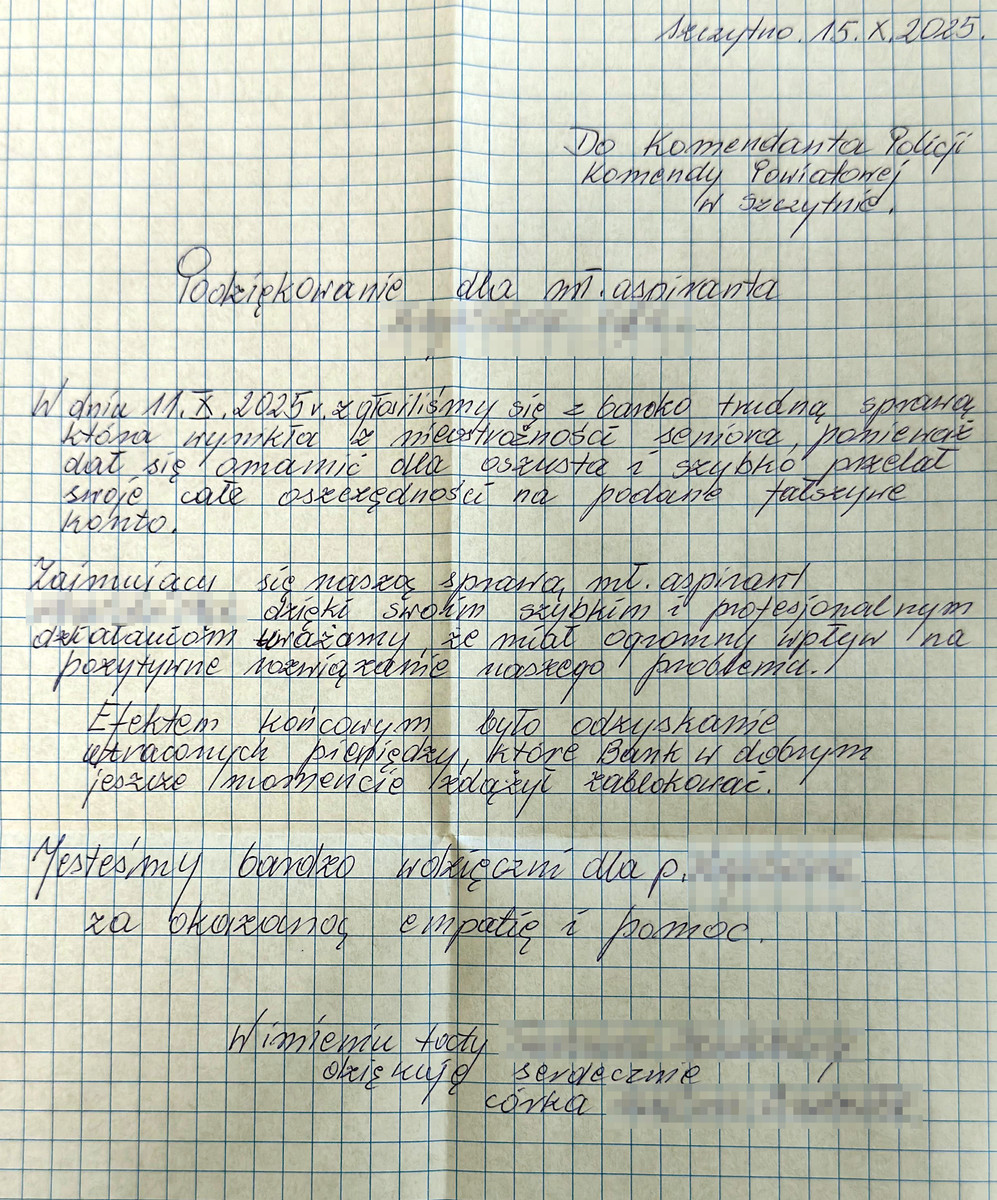 Szczytno. 15. X. 2025.
Do Komendanta Policji
Komendy Powiatowej
w Szczytnie.
Podziękowanie dla mł. aspiranta
W dniu 11. X. 2025r. zgłosiliśmy się z bardzo trudną sprawą
która wymkła z nieostrożności seniora, ponieważ
dał się omamić dla oszusta i szybko przelał
swoje całe oszczędności na podane fałszywe
konto.
Zajmujący się naszą sprawą mł. aspirant
dzięki swoim szybkim i profesjonalnym
działaniom uważamy, że miał ogromny wpływ na
pozytywne rozwiązanie naszego problemu.
Efektem końcowym było odzyskanie
utraconych pieniędzy, które Bank w dobrym
jeszcze momencie zdążył zablokować.
Jesteśmy bardzo wdzięczni dla p.
za okazaną empatię i pomoc.
W imieniu taty
dziękuję serdecznie
córka